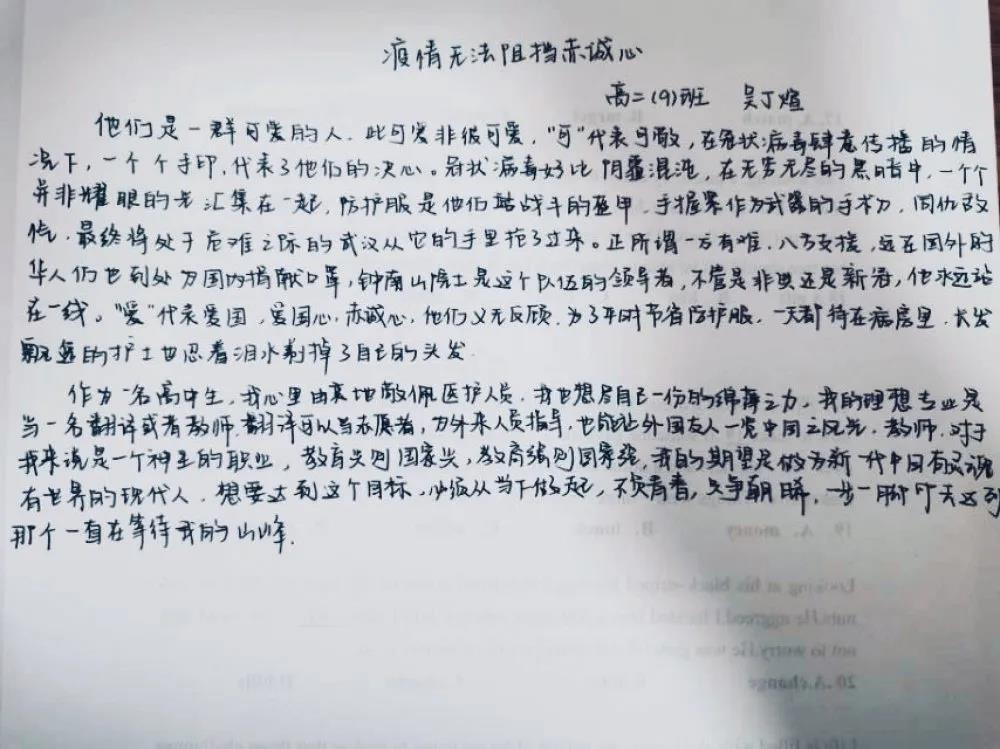 疫情无法阻挡赤诚心
高二(9)班 吴丁煊
他们是一群可爱的人，此可爱非彼可爱，"可"代表可敬，在冠状病毒肆意传播的情
况下，一个个手印，代表了他们的决心。冠状病毒好比阴霾混沌，在无穷无尽的黑暗中，一个个
并非耀眼的光汇集在一起，防护服是他们站战斗的盔甲，手握紧作为武器的手术刀，同仇敌
忾，最终将处于危难之际的武汉从它的手里抢了过来。正所谓一方有难，八方支援，远在国外的
华人们也到处为国内捐献口罩，钟南山院士是这个队伍的领导者，不管是非典还是新冠，他永远站
在一线。"爱"代表爱国，爱国心，赤诚心，他们义无反顾，为了平时节省防护服，一天都待在病房里，长发
飘逸的护士也忍着泪水剃掉了自己的头发.
作为一名高中生，我心里由衷地敬佩医护人员，我也想尽自己一份的绵薄之力，我的理想专业是
当一名翻译或者教师，翻译可以当志愿者，为外来人员指导，也能让外国友人一览中国之风光，教师，对于
我来说是一个神圣的职业，教育兴则国家兴，教育强则国家强，我的期望是做为新一代中国有灵魂
有世界的现代人，想要达到这个目标，必须从当下做起，不负青春，只争朝夕，一步一脚印去达到
那个一直在等待我的山峰.
19. A. money B. lunch
Looking at his black
nuts. He agreed. I
not to worry. He was
20. A. change